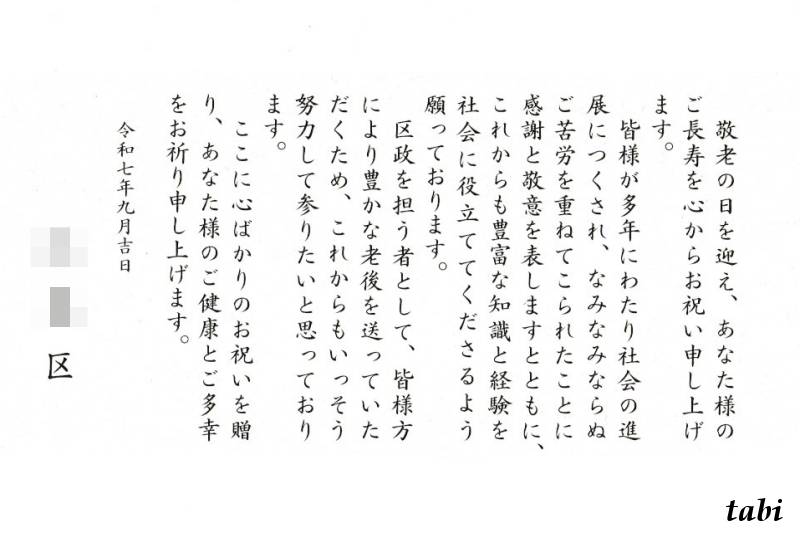 敬老の日を迎え、あなた様の
ご長寿を心からお祝い申し上げ
ます。
皆様が多年にわたり社会の進
展につくされ、なみなみならぬ
ご苦労を重ねてこられたことに
感謝と敬意を表しますとともに、
これからも豊富な知識と経験を
社会に役立ててくださるよう
願っております。
区政を担う者として、皆様方
により豊かな老後を送っていた
だくため、これからもいっそう
努力して参りたいと思っており
ます。
ここに心ばかりのお祝いを贈
り、あなた様のご健康とご多幸
をお祈り申し上げます。
令和七年九月吉日
区
tabi